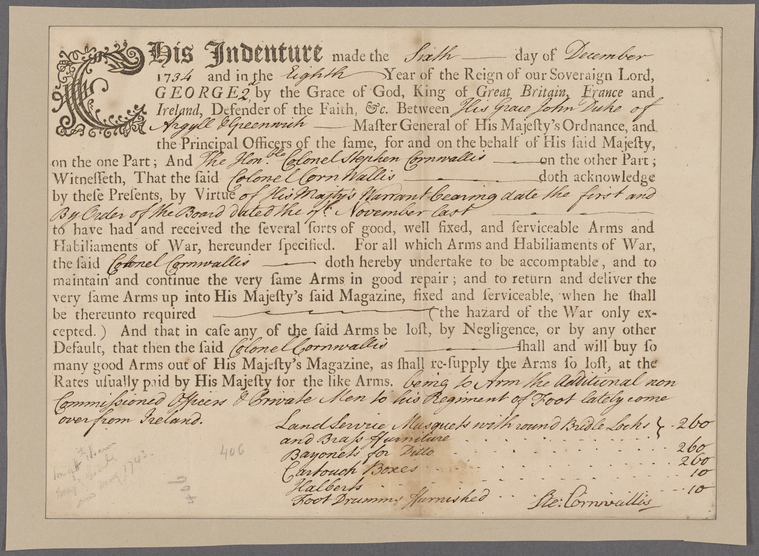 THis Indenture made the Sixth day of December
1734 and in the Eighth Year of the Reign of our Soveraign Lord,
GEORGE 2, by the Grace of God, King of Great Britain, France and
Ireland, Defender of the Faith, &c. Between His Grace John Duke of
Argyll & Greenwich Master General of His Majesty's Ordnance, and
the Principal Officers of the same, for and on the behalf of His said Majesty,
on the one Part; And The Hon.ble Colonel Stephen Cornwallis on the other Part;
Witnesseth, That the said Colonel CornWallis doth acknowledge
by these Presents, by Virtue of His Majtys Warrant bearing date the first and
By Order of the Board dated the November last
to have had and received the several sorts of good, well fixed, and serviceable Arms and
Habiliaments of War, hereunder specified. For all which Arms and Habiliaments of War,
the said Colonel Cornwallis doth hereby undertake to be accomptable, and to
maintain and continue the very same Arms in good repair; and to return and deliver the
very same Arms up into His Majesty's said Magazine, fixed and serviceable, when he shall
be thereunto required (the hazard of the War only ex-
cepted.) And that in case any of the said Arms be lost, by Negligence, or by any other
Default, that then the said Colonel Cornwallis shall and will buy so
many good Arms out of His Majesty's Magazine, as shall re-supply the Arms so lost, at the
Rates usually paid by His Majesty for the like Arms. being to Arm the Additional non
Commissioned Officers & Private Men to his Regiment of Foot lately come
over from Ireland.
Land Service Musquets with round Bridle Locks } 260
and Brass Furniture
Bayonets for Ditto 260
Cartouch Boxes 260
Halberts 10
Foot Drumms Furnished 10
Ste: Cornwallis
406